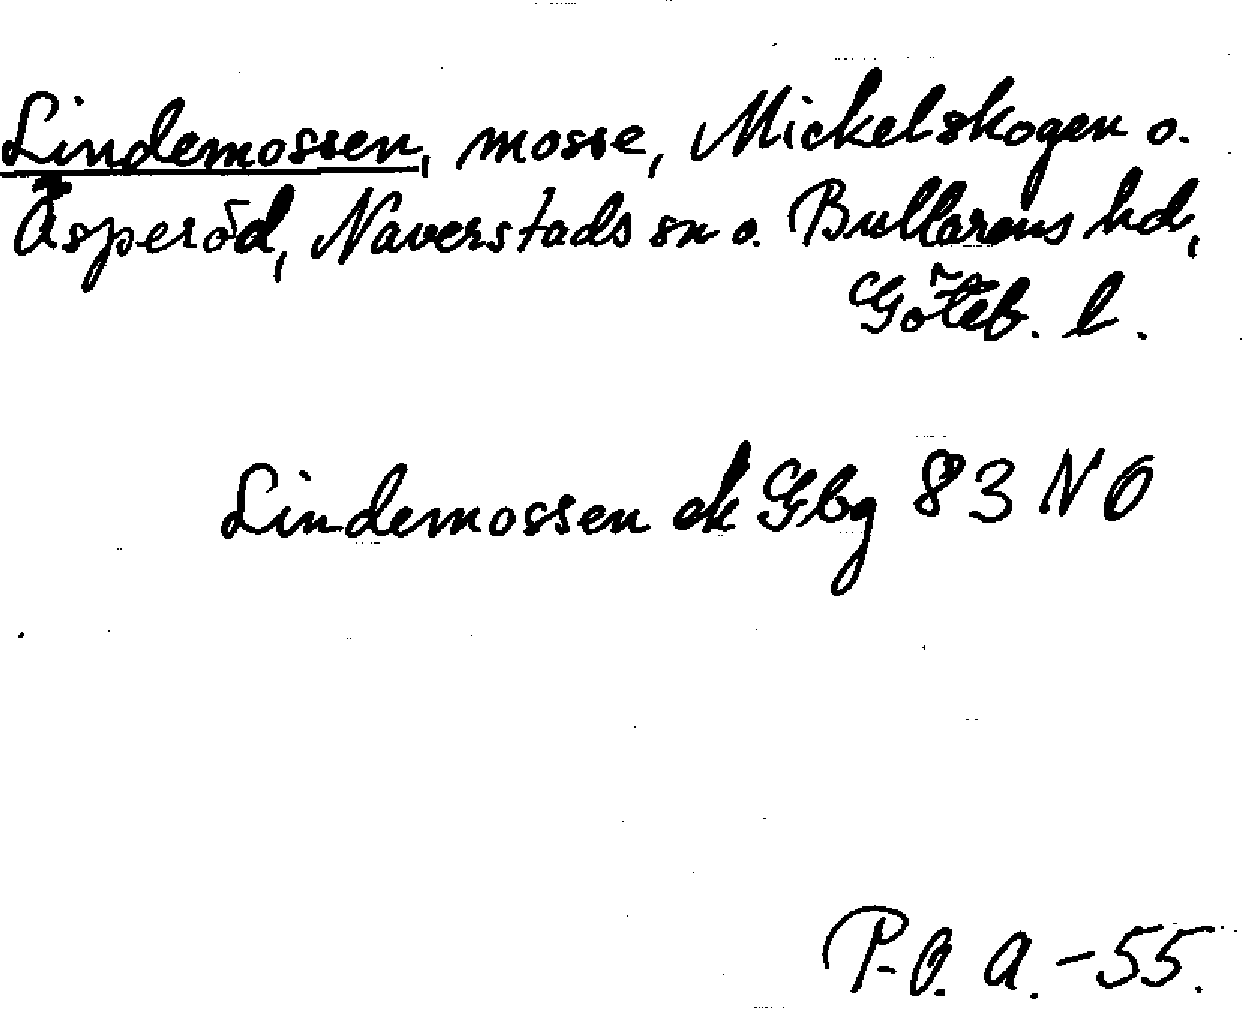 Lindemossen, mosse, Mickelskogen o.
Asperöd, Naverstads sn o. Bullarens hd,
Göteb. l.
Lindemossen ek Gbg 83 NO
P-O. A. -55.